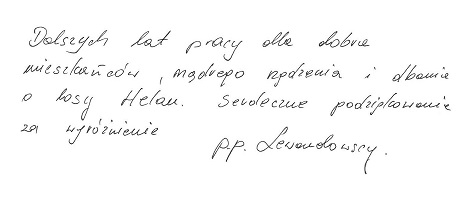 Dalszych lat pracy dla dobra
mieszkańców, mądrego rządzenia i dbania
o losy Helan. Serdeczne podziękowanie
za wyróżnienie
p.p. Lewandowscy.